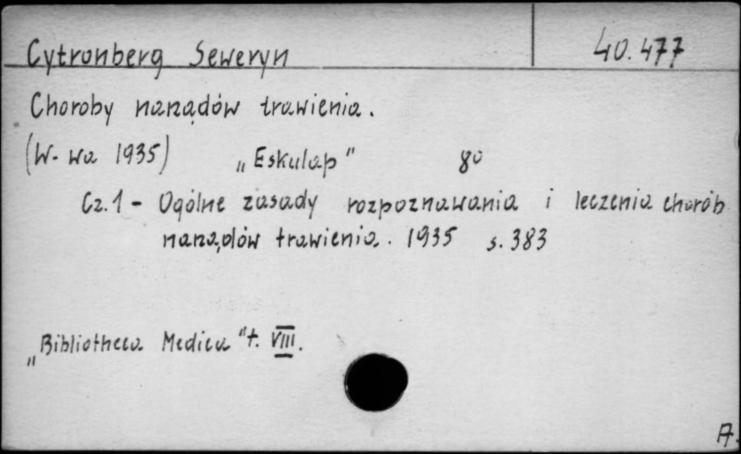 Cytronberg Seweryn 40.477
Choroby narządów trawienia.
(W-wa 1935) „Eskulap" 8o
Cz.1 - Ogólne zasady rozpoznawania i leczenia chorób
narządów trawienia. 1935 s. 383
„Bibliotheca Medica" t. VIII.
A.